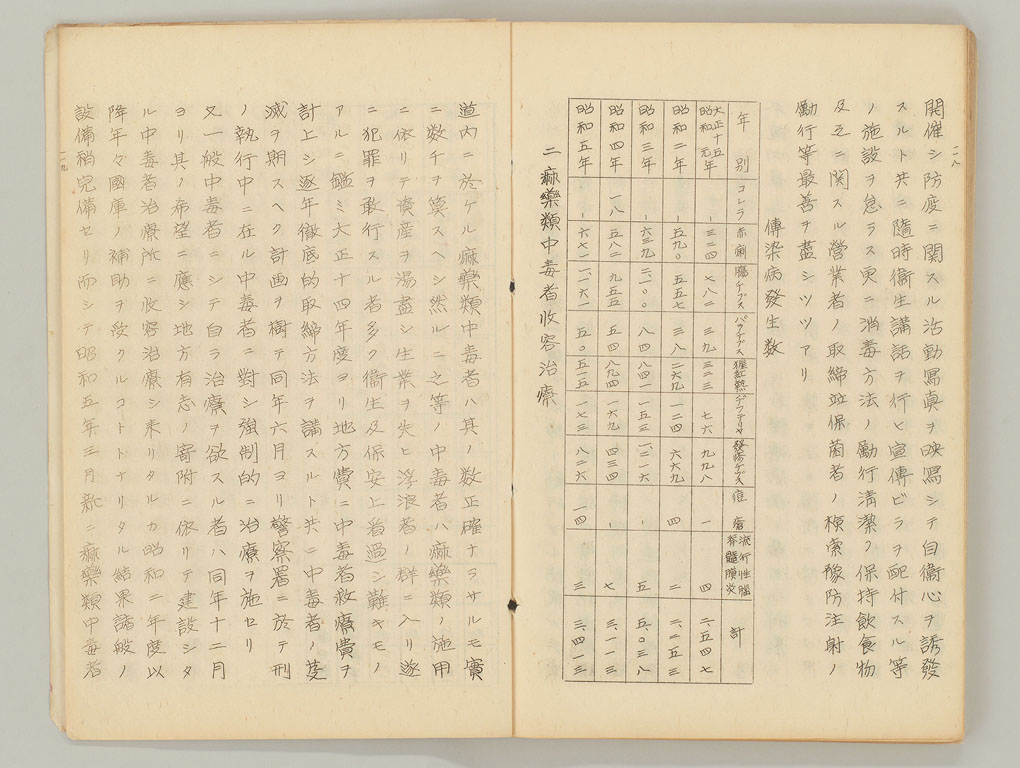 一一八
開催シ防疫ニ関スル活動寫真ヲ映寫シテ自衛心ヲ誘發
スルト共ニ隨時衛生講話ヲ行ヒ宣傳ビラヲ配付スル等
ノ施設ヲ怠ラス更ニ消毒方法ノ勵行清潔ノ保持飲食物
及之ニ関スル営業者ノ取締並保菌者ノ検索豫防注射ノ
勵行等最善ヲ盡シツツアリ
傳染病發生数
年別 コレラ 赤痢 腸チブス パラチブス 猩紅熱 ヂフテリヤ 發疹チブス 痘瘡 流行性脳脊髄膜炎 計
大正十五昭和元年 、 三二四 七八二 三九 三二三 七六 九九八 一 四 二、五四七
昭和二年 、 五九〇 五五七 三八 二六九 一二四 六六九 四 二 二、二五三
昭和三年 、 六三九 二、一〇〇 八四 八四一 一五三 一、二一六 、 五 五、〇三八
昭和四年 一八 五八二 九五五 五四 八九四 一六九 四三四 、 七 三、一一三
昭和五年 、 六七一 一、一六一 五〇 五一五 一七三 八二六 一四 三 三、四一三
二 痳藥類中毒者收容治療
道内ニ於ケル痳藥類中毒者ハ其ノ数正確ナラサルモ實
ニ数千ヲ算スヘシ然ルニ之等ノ中毒者ハ痳藥類ノ施用
ニ依リテ資産ヲ湯盡シ生業ヲ失ヒ浮浪者ノ群ニ入リ遂
ニ犯罪ヲ敢行スル者多ク衛生及保安上看過シ難キモノ
アルニ鑑ミ大正十四年度ヨリ地方費ニ中毒者救療費ヲ
計上シ逐年徹底的取締方法ヲ講スルト共ニ中毒者ノ芟
滅ヲ期スヘク計画ヲ樹テ同年六月ヨリ警察署ニ於テ刑
ノ執行中ニ在ル中毒者ニ對シ強制的ニ治療ヲ施セリ
又一般中毒者ニシテ自ラ治療ヲ欲スル者ハ同年十二月
ヨリ其ノ希望ニ應シ地方有志ノ寄附ニ依リテ建設シタ
ル中毒者治療所ニ收容治療シ来リタルカ昭和二年度以
降年々國庫ノ補助ヲ受クルコトトナリタル結果諸般ノ
設備稍完備セリ而シテ昭和五年三月新ニ痳藥類中毒者
一一九